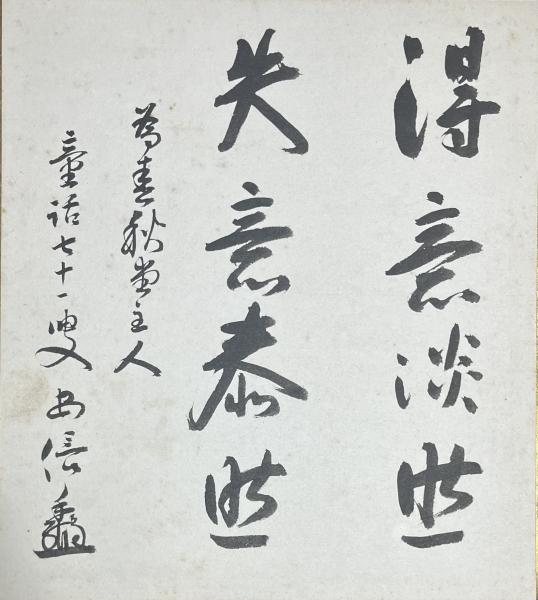 得意淡然
失意泰然
為春秋堂主人
童話七十一叟 安倍